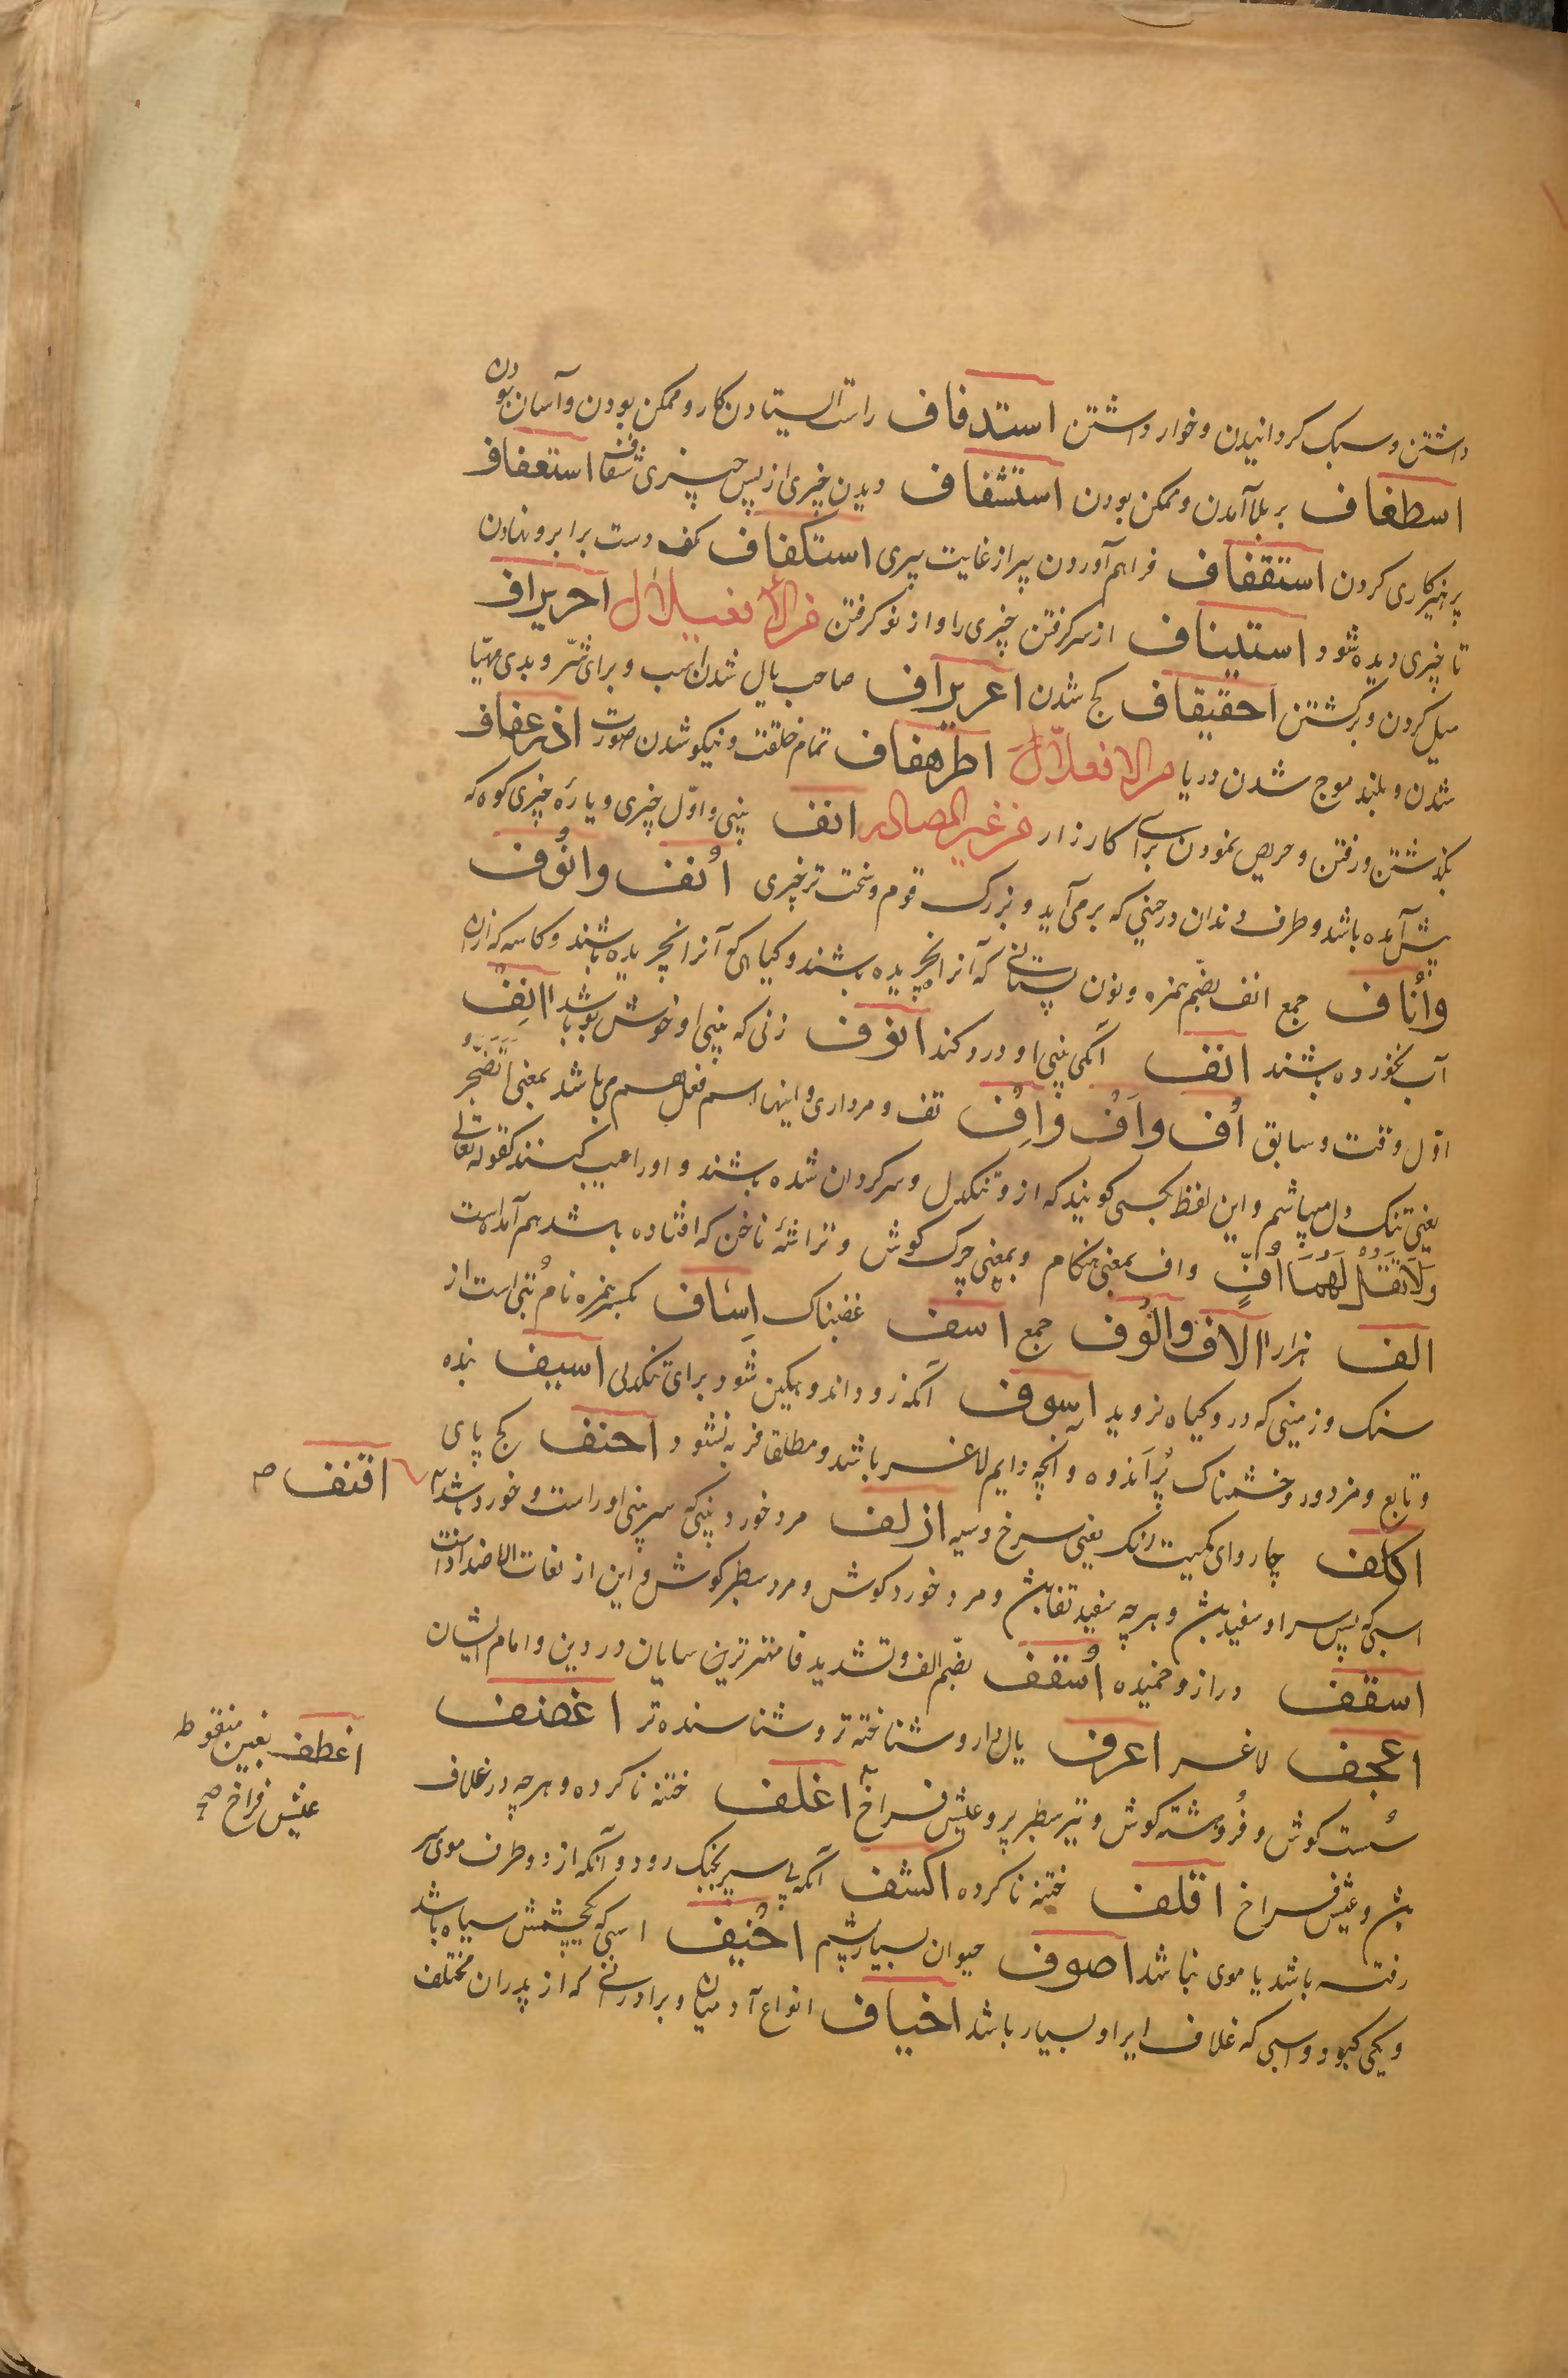 داشتن و سبک کردانیدن و خوار داشتن استدفاف راست ایستادن کار و ممکن بودن و آسان بودن
اسطفاف بر بلا آمدن و ممکن بودن استشفاف دیدن چیزی از پس چیزی شفاف استعفاف
پرهیزکاری کردن استقفاف فراهم آوردن پیر از غایت پیری استکفاف کف دست برابرو نهادن
تا چیزی دیده شود استیناف از سر کرفتن چیزی را و از نو کرفتن من الافعیلال احریراف
میل کردن و برکشتن احقیقاف کج شدن اعریراف صاحب یال شدن اسب و برای شرّ و بدی مهیّا
شدن و بلند موج شدن دریا من الافعلّال اطرهفاف تمام خلقت و نیکو شدن صورت اذرعفاف
بگذشتن و رفتن و حریص نمودن برای کارزار من غیر المصادر انف بینی و اوّل چیزی و پارهٔ چیزی کوه که
پیش آمده باشد و طرف دندان در حینی که بر می آید و بزرک قوم و سخت تر چیزی اُنف وانُوف
واُناف جمع انف بضّم همزه و نون بستانی که آنرا نچریده باشند و کیاهی که آنرا نچریده باشند و کاسه که ازان
آب نخورده باشند انف آنکه بینی او درد کند انوف زنی که بینی او خوش بو باشد اانِف
اوّل وقت و سابق اُف واَف واِف تف و مرداری و اینها اسم فعل هم می باشد بمعنی اَتَضَجَّرُ
یعنی تنک دل میباشم و این لفظ بکسی کویند که ازو تنکدل و سرکردان شده باشند و اورا عیب کنند کقوله تعالی
وَلَا تَقُلْ لَهُمَا اُفٍّ واف بمعنی هنکام و بمعنی چرک کوش و تراشهٔ ناخن که افتاده باشد هم آمده است
الف هزار االاف والُوف جمع اسف غضبناک اِساف بکسر همزه نام بُتی است از
سنک و زمینی که درو کیاه نروید اسوف آنکه زود اندوهکین شود برای تنکدلی اسیف بنده
و تابع و مزدور و خشمناک پُر اندوه و آنچه دایم لاغر باشد و مطلقا فربه نشود احنف کج پای
اکلف چاروای کمیت رنک یعنی سرخ و سیه ازلف مرد خورد بینی که سر بینی او راست و خورد باشد
اقنف صح
اسبی که پس سر او سفید باشد و هرچه سفید قفا باشد و مرد خورد کوش و مرد سطبر کوش و این از لغات الاضداد است
اسقف دراز و خمیده اُسقف بضّم الف و تشدید فا مهتر ترین سایان در دین و امام ایشان
اعجف لاغر اعرف یال دار و شناخته تر و شناسنده تر اغضف
اغطف بغین منقوط
عیش فراخ صح
سُست کوش و فُروهشته کوش و تیر سطبر پر و عیش فراخ اغلف ختنه ناکرده و هرچه در غلاف
باشد و عیش فراخ اقلف ختنه ناکرده اکشف آنکه بی سپر بجنک رود و آنکه از دو طرف موی سر
رفته باشد یا موی نباشد اصوف حیوان بسیار پشم اخیف اسبی که یک چشمش سیاه باشد
و یکی کبود و اسبی که غلاف ایر او بسیار باشد اخیاف انواع آدمیان و برادرانی که از پدران مختلف